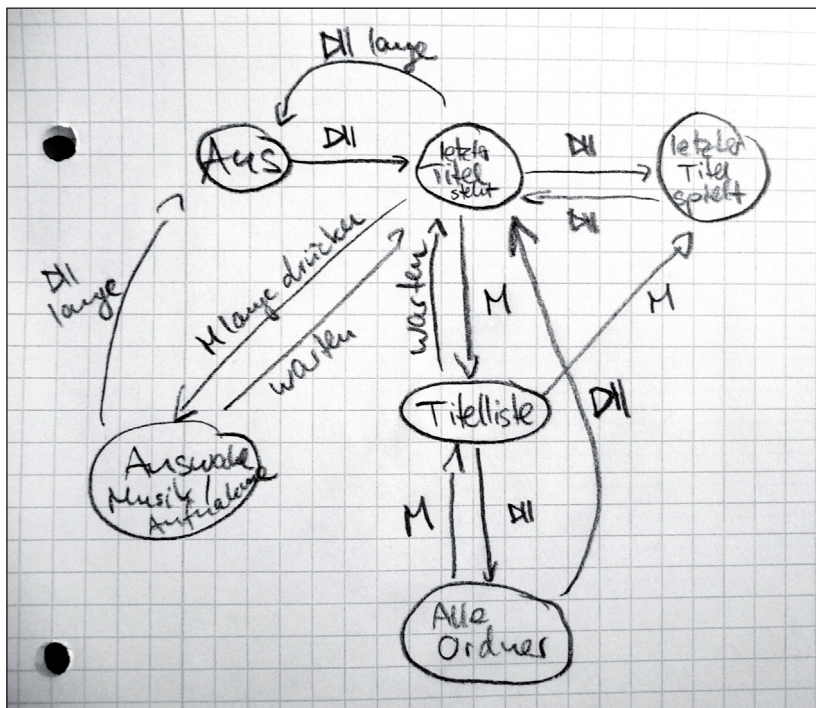 ▷|| lange
Aus
▷||
letzter
Titel
steht
▷||
▷||
letzter
Titel
spielt
▷||
lange
M lange drücken
warten
warten
M
M
Titelliste
▷||
Auswahl
Musik/
Aufnahme
M
▷||
Alle
Ordner